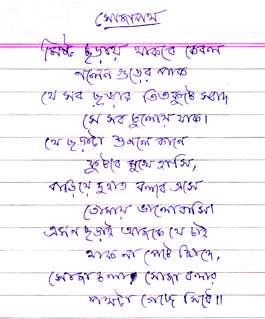 সোজাপথ
মিষ্টি ছড়ায় থাকবে কেবল
নলেন গুড়ের পাক
যে সব ছড়ার তিতকুটে স্বাদ
সে সব চুলোয় যাক।
যে ছড়াটা শুনলে কানে
ফুটবে মুখে হাসি,
বাড়িয়ে দুহাত বলবে এসে
তোমায় ভালোবাসি।
এমন ছড়াই আজকে যে চাই
থাক না পেটে খিদে,
সোজা চলা, সোজা বলার
পথটা গেছে সিধে॥